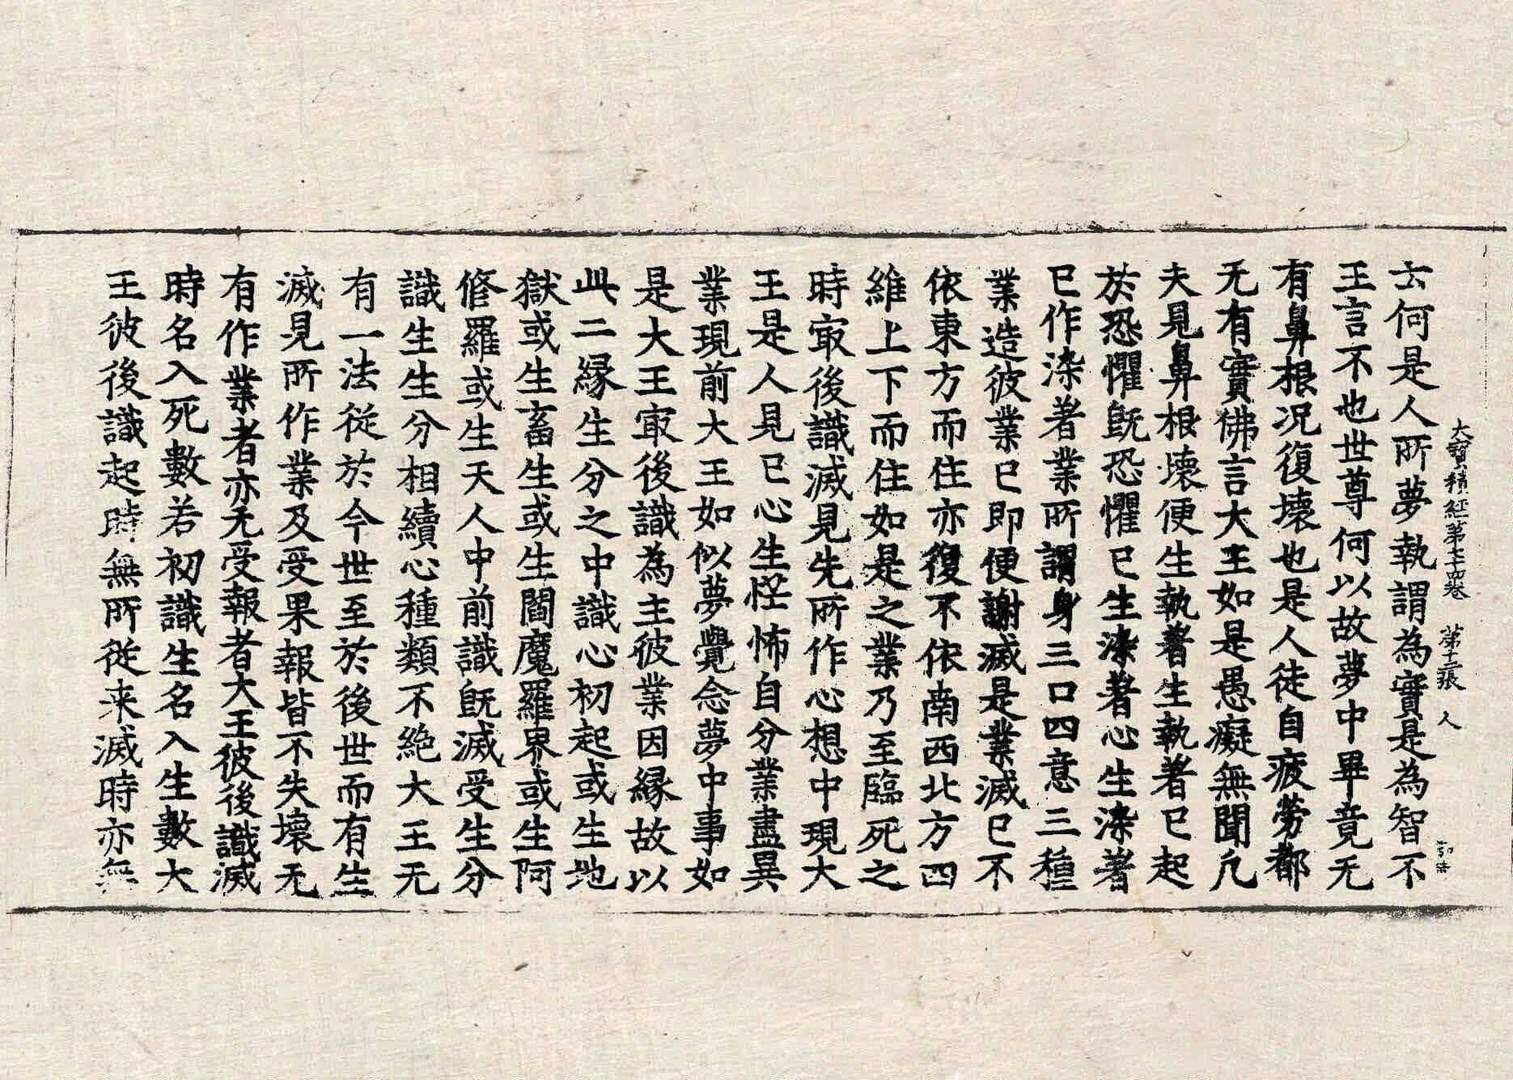 大寶積經第七十四卷 第十二張 人
云何是人所夢執謂為實是為智不
王言不也世尊何以故夢中畢竟无
有鼻根况復壞也是人徒自疲勞都
无有實佛言大王如是愚癡無聞凡
夫見鼻根壞便生執著生執著已起
於恐懼既恐懼已生染著心生染著
已作染著業所謂身三口四意三種
業造彼業已即便謝滅是業滅已不
依東方而住亦復不依南西北方四
維上下而住如是之業乃至臨死之
時㝡後識滅見先所作心想中現大
王是人見已心生怪怖自分業盡異
業現前大王如似夢覺念夢中事如
是大王㝡後識為主彼業因緣故以
此二緣生分之中識心初起或生地
獄或生畜生或生閻魔羅界或生阿
修羅或生天人中前識既滅受生分
識生生分相續心種類不絶大王无
有一法從於今世至於後世而有生
滅見所作業及受果報皆不失壞无
有作業者亦无受報者大王彼後識滅
時名入死數若初識生名入生數大
王彼後識起時無所從来滅時亦無